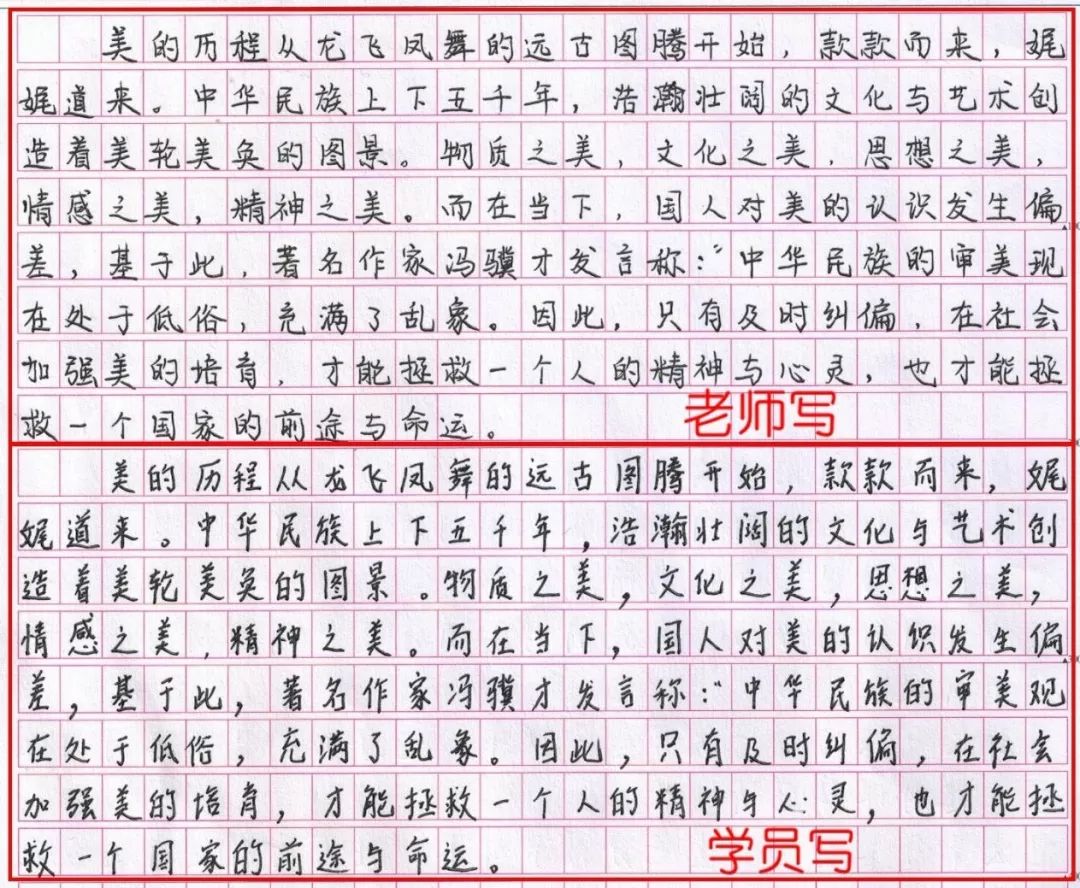 美的历程从龙飞凤舞的远古图腾开始，款款而来，娓
娓道来。中华民族上下五千年，浩瀚壮阔的文化与艺术创
造着美轮美奂的图景。物质之美，文化之美，思想之美，
情感之美，精神之美。而在当下，国人对美的认识发生偏
差，基于此，著名作家冯骥才发言称：“中华民族的审美现
在处于低俗，充满了乱象。因此，只有及时纠偏，在社会
加强美的培育，才能拯救一个人的精神与心灵，也才能拯
救一个国家的前途与命运。
老师写
美的历程从龙飞凤舞的远古图腾开始，款款而来，娓
娓道来。中华民族上下五千年，浩瀚壮阔的文化与艺术创
造着美轮美奂的图景。物质之美，文化之美，思想之美，
情感之美，精神之美。而在当下，国人对美的认识发生偏
差，基于此，著名作家冯骥才发言称：“中华民族的审美观
在处于低俗，充满了乱象。因此，只有及时纠偏，在社会
加强美的培育，才能拯救一个人的精神与心灵，也才能拯
救一个国家的前途与命运。
学员写